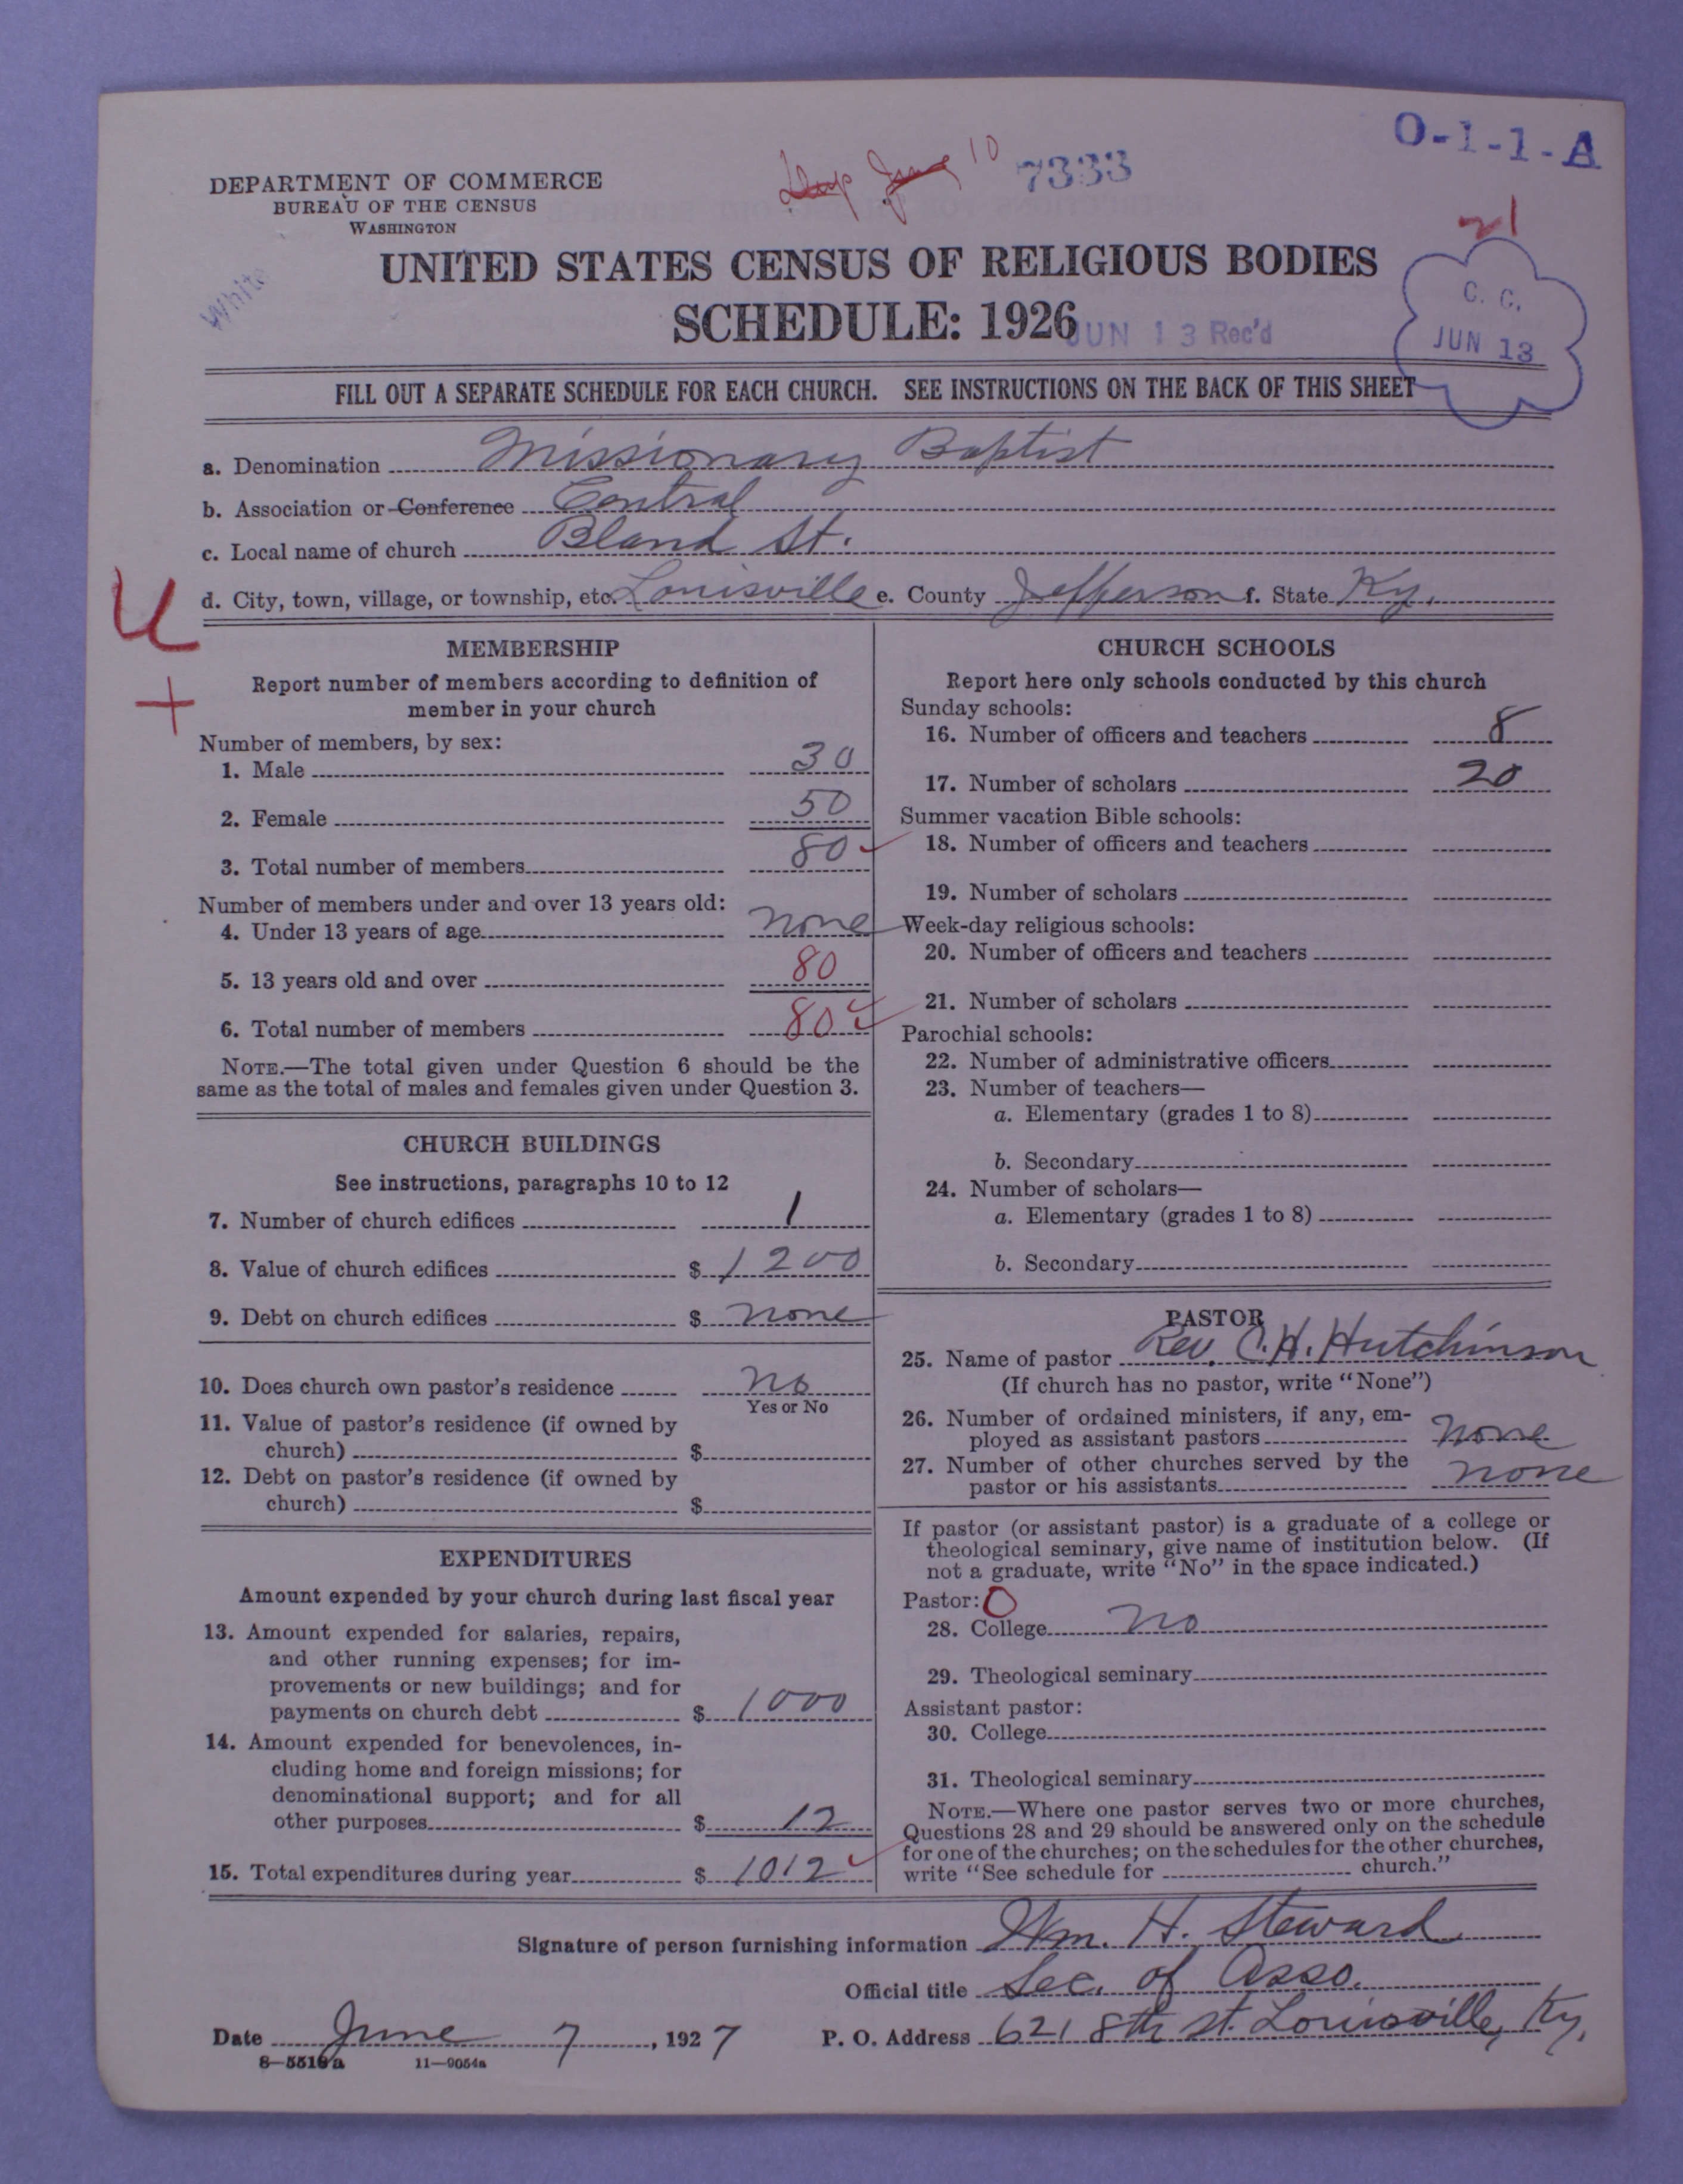 O-1-1-A
10
7333
DEPARTMENT OF COMMERCE
BUREAU OF THE CENSUS
WASHINGTON
White
UNITED STATES CENSUS OF RELIGIOUS BODIES
SCHEDULE: 1926
JUN 13 Rec'd
C. C.
JUN 13
FILL OUT A SEPARATE SCHEDULE FOR EACH CHURCH. SEE INSTRUCTIONS ON THE BACK OF THIS SHEET
a. Denomination Missionary Baptist
b. Association or Conference Central
c. Local name of church Bland St.
d. City, town, village, or township, etc. Louisville e. County Jefferson f. State Ky.
U
+
MEMBERSHIP
Report number of members according to definition of
member in your church
Number of members, by sex:
1. Male 30
2. Female 50
3. Total number of members 80
Number of members under and over 13 years old:
4. Under 13 years of age none
5. 13 years old and over 80
6. Total number of members 80
NOTE.—The total given under Question 6 should be the
same as the total of males and females given under Question 3.
CHURCH BUILDINGS
See instructions, paragraphs 10 to 12
7. Number of church edifices 1
8. Value of church edifices $ 1200
9. Debt on church edifices $ none
10. Does church own pastor's residence no
Yes or No
11. Value of pastor's residence (if owned by
church) $
12. Debt on pastor's residence (if owned by
church) $
EXPENDITURES
Amount expended by your church during last fiscal year
13. Amount expended for salaries, repairs,
and other running expenses; for im-
provements or new buildings; and for
payments on church debt $ 1000
14. Amount expended for benevolences, in-
cluding home and foreign missions; for
denominational support; and for all
other purposes $ 12
15. Total expenditures during year $ 1012
CHURCH SCHOOLS
Report here only schools conducted by this church
Sunday schools:
16. Number of officers and teachers 8
17. Number of scholars 20
Summer vacation Bible schools:
18. Number of officers and teachers
19. Number of scholars
Week-day religious schools:
20. Number of officers and teachers
21. Number of scholars
Parochial schools:
22. Number of administrative officers
23. Number of teachers—
a. Elementary (grades 1 to 8)
b. Secondary
24. Number of scholars—
a. Elementary (grades 1 to 8)
b. Secondary
PASTOR
25. Name of pastor Rev. C. H. Hutchinson
(If church has no pastor, write "None")
26. Number of ordained ministers, if any, em-
ployed as assistant pastors none
27. Number of other churches served by the
pastor or his assistants none
If pastor (or assistant pastor) is a graduate of a college or
theological seminary, give name of institution below. (If
not a graduate, write "No" in the space indicated.)
Pastor: O
28. College no
29. Theological seminary
Assistant pastor:
30. College
31. Theological seminary
NOTE.—Where one pastor serves two or more churches,
Questions 28 and 29 should be answered only on the schedule
for one of the churches; on the schedules for the other churches,
write "See schedule for church."
Signature of person furnishing information Wm. H. Steward
Official title Sec. of Asso.
Date June 7, 1927 P. O. Address 621 8th St. Louisville, Ky.
8-5518a 11-9054a